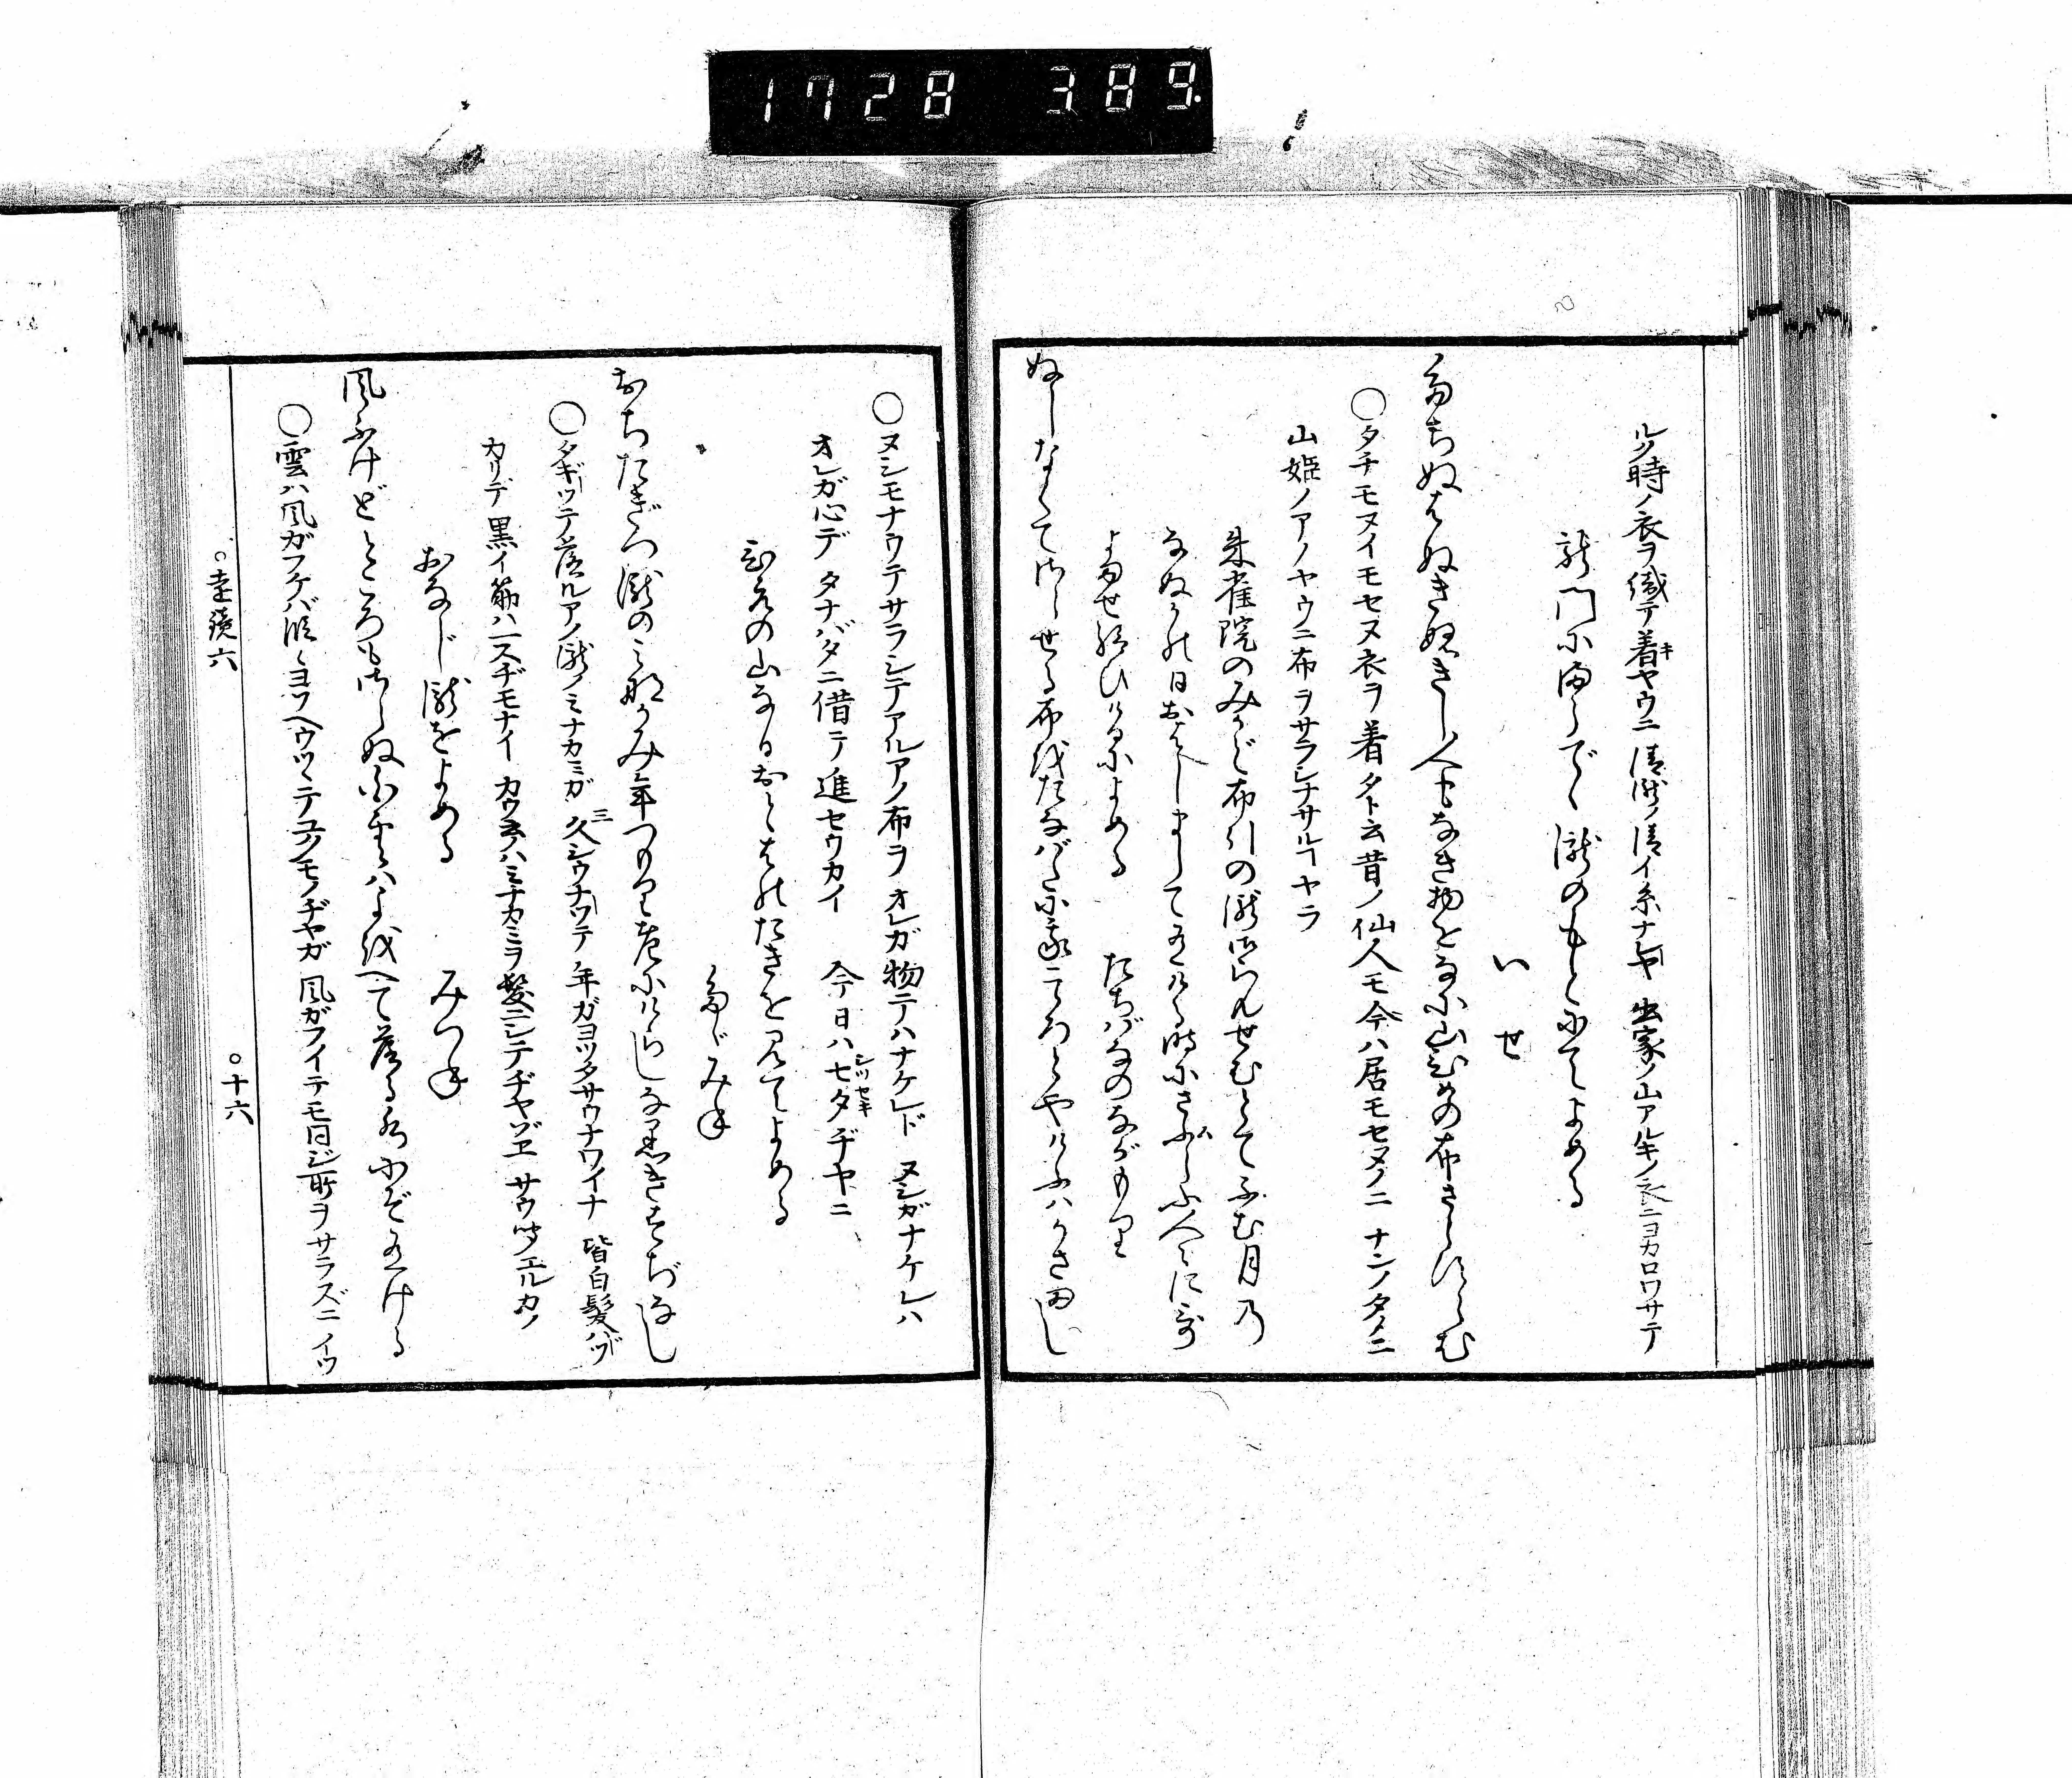 1728 389
ルノ時ノ衣ヲ織テ着ヤウニ 清瀧ノ清イ糸ナレヤ 出家ノ山アルキノ衣ニヨカロワサテ
龍門にまうでゝ瀧のもとにてよめる
いせ
たちぬはぬきぬきし人もなき物をなに山ひめの布さらすらむ
○タチモヌイモセヌ衣ヲ着タト云昔ノ仙人モ今ハ居モセヌノニ ナンノタメニ
山姫ノアノヤウニ布ヲサラシナサルヿヤラ
朱雀院のみかど布引の瀧御らんせむとてふむ月の
なぬかの日おはしまして有ける時にさふらふ人々に哥
よませ給ひけるによめる たちばなのながもり
ぬしなくてさらせる布をたなばたに我こゝろとやけふはかさまし
○ヌシモナウテサラシテアルアノ布ヲ オレガ物テハナケレド ヌシガナケレハ
オレガ心デ タナバタニ借テ進セウカイ 今日ハ七夕ヂヤニ
ひえの山なるおとはのたきを見てよめる
たゞみね
おちたぎつ瀧のみなかみ年つもり老にけらしな黒きすぢなし
○タギツテ落ルアノ瀧ノミナカミガ 久シウナツテ 年ガヨツタサウナワイナ 皆白髪バツ
カリデ 黒イ筋ハ一スヂモナイ カウ云ハミナカミヲ髪ニシテヂヤゾヱ サウ聞エルカノ
おなじ瀧をよめる
みつね
風ふけどところもさらぬ白雲はよをへて落る水にぞ有ける
○雲ハ風ガフケバ段々ヨソヘウツヽテユクモノヂヤガ 風ガフイテモ同ジ所ヲサラズニ イツ
○遠鏡六
○十六